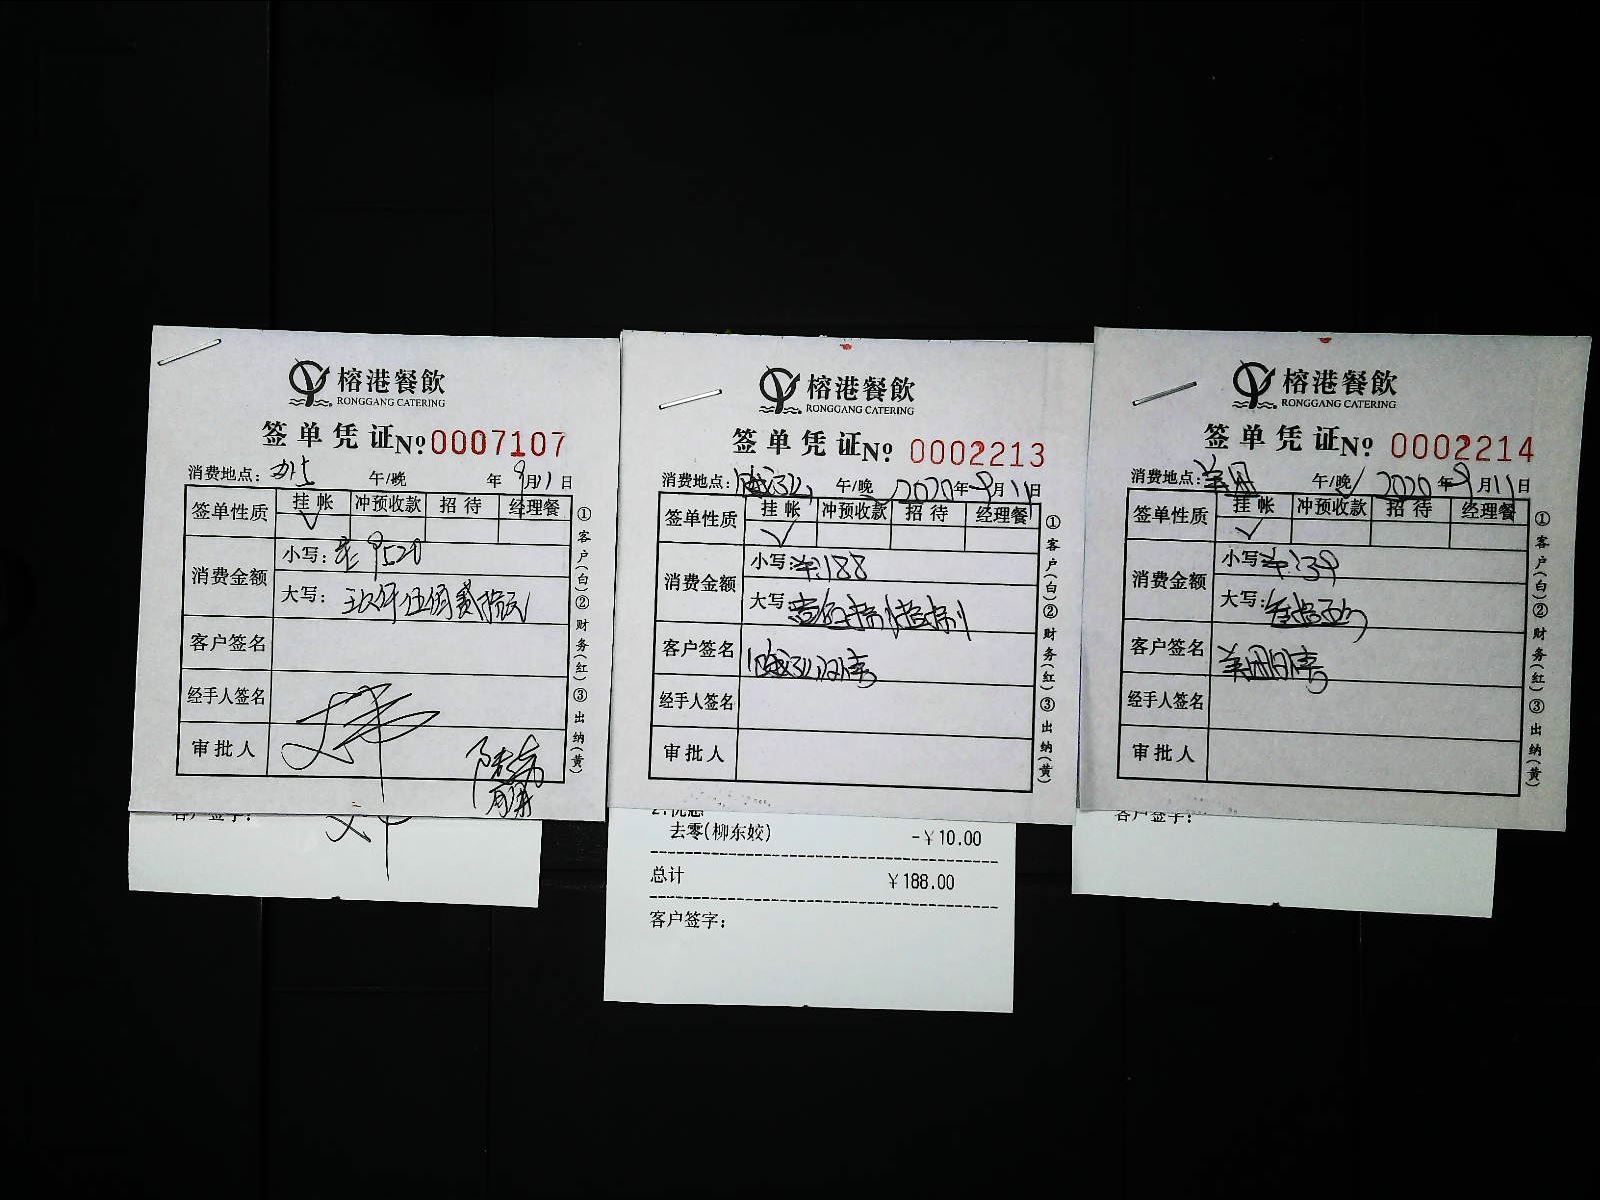 榕港餐飲
RONGGANG CATERING
签单凭证 No: 0007107
消费地点: 午/晚 年 9月11日
签单性质 挂帐 冲预收款 招待 经理餐
✓
消费金额
小写: 9520
大写: 玖仟伍佰贰拾元
客户签名
经手人签名
审批人
①客户(白)②财务(红)③出纳(黄)
客户签字:
榕港餐飲
RONGGANG CATERING
签单凭证 No: 0002213
消费地点: 午/晚 2020年9月11日
签单性质 挂帐 冲预收款 招待 经理餐
✓
消费金额
小写: ¥:188
大写:
客户签名
经手人签名
审批人
①客户(白)②财务(红)③出纳(黄)
去零(柳东姣) -￥10.00
总计 ￥188.00
客户签字:
榕港餐飲
RONGGANG CATERING
签单凭证 No: 0002214
消费地点: 午/晚✓ 2020年9月11日
签单性质 挂帐 冲预收款 招待 经理餐
✓
消费金额
小写: ¥:39
大写:
客户签名
经手人签名
审批人
①客户(白)②财务(红)③出纳(黄)
客户签字: